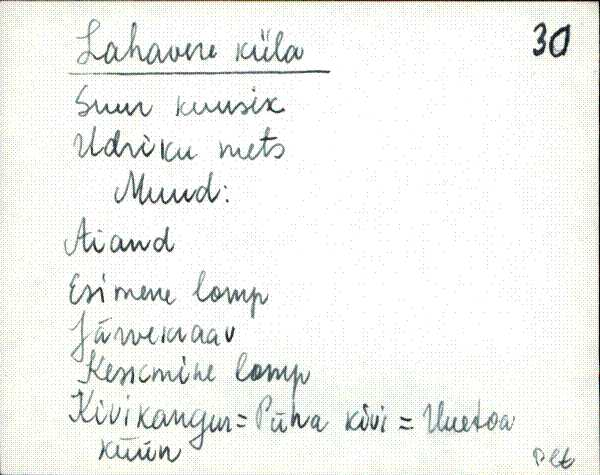 Lahavere küla
30
Suur kuusik
Udriku mets
Muud:
Aiand
Esimene lomp
Järvekraav
Keskmine lomp
Kivikangur = Püha kivi = Uuetoa
küün